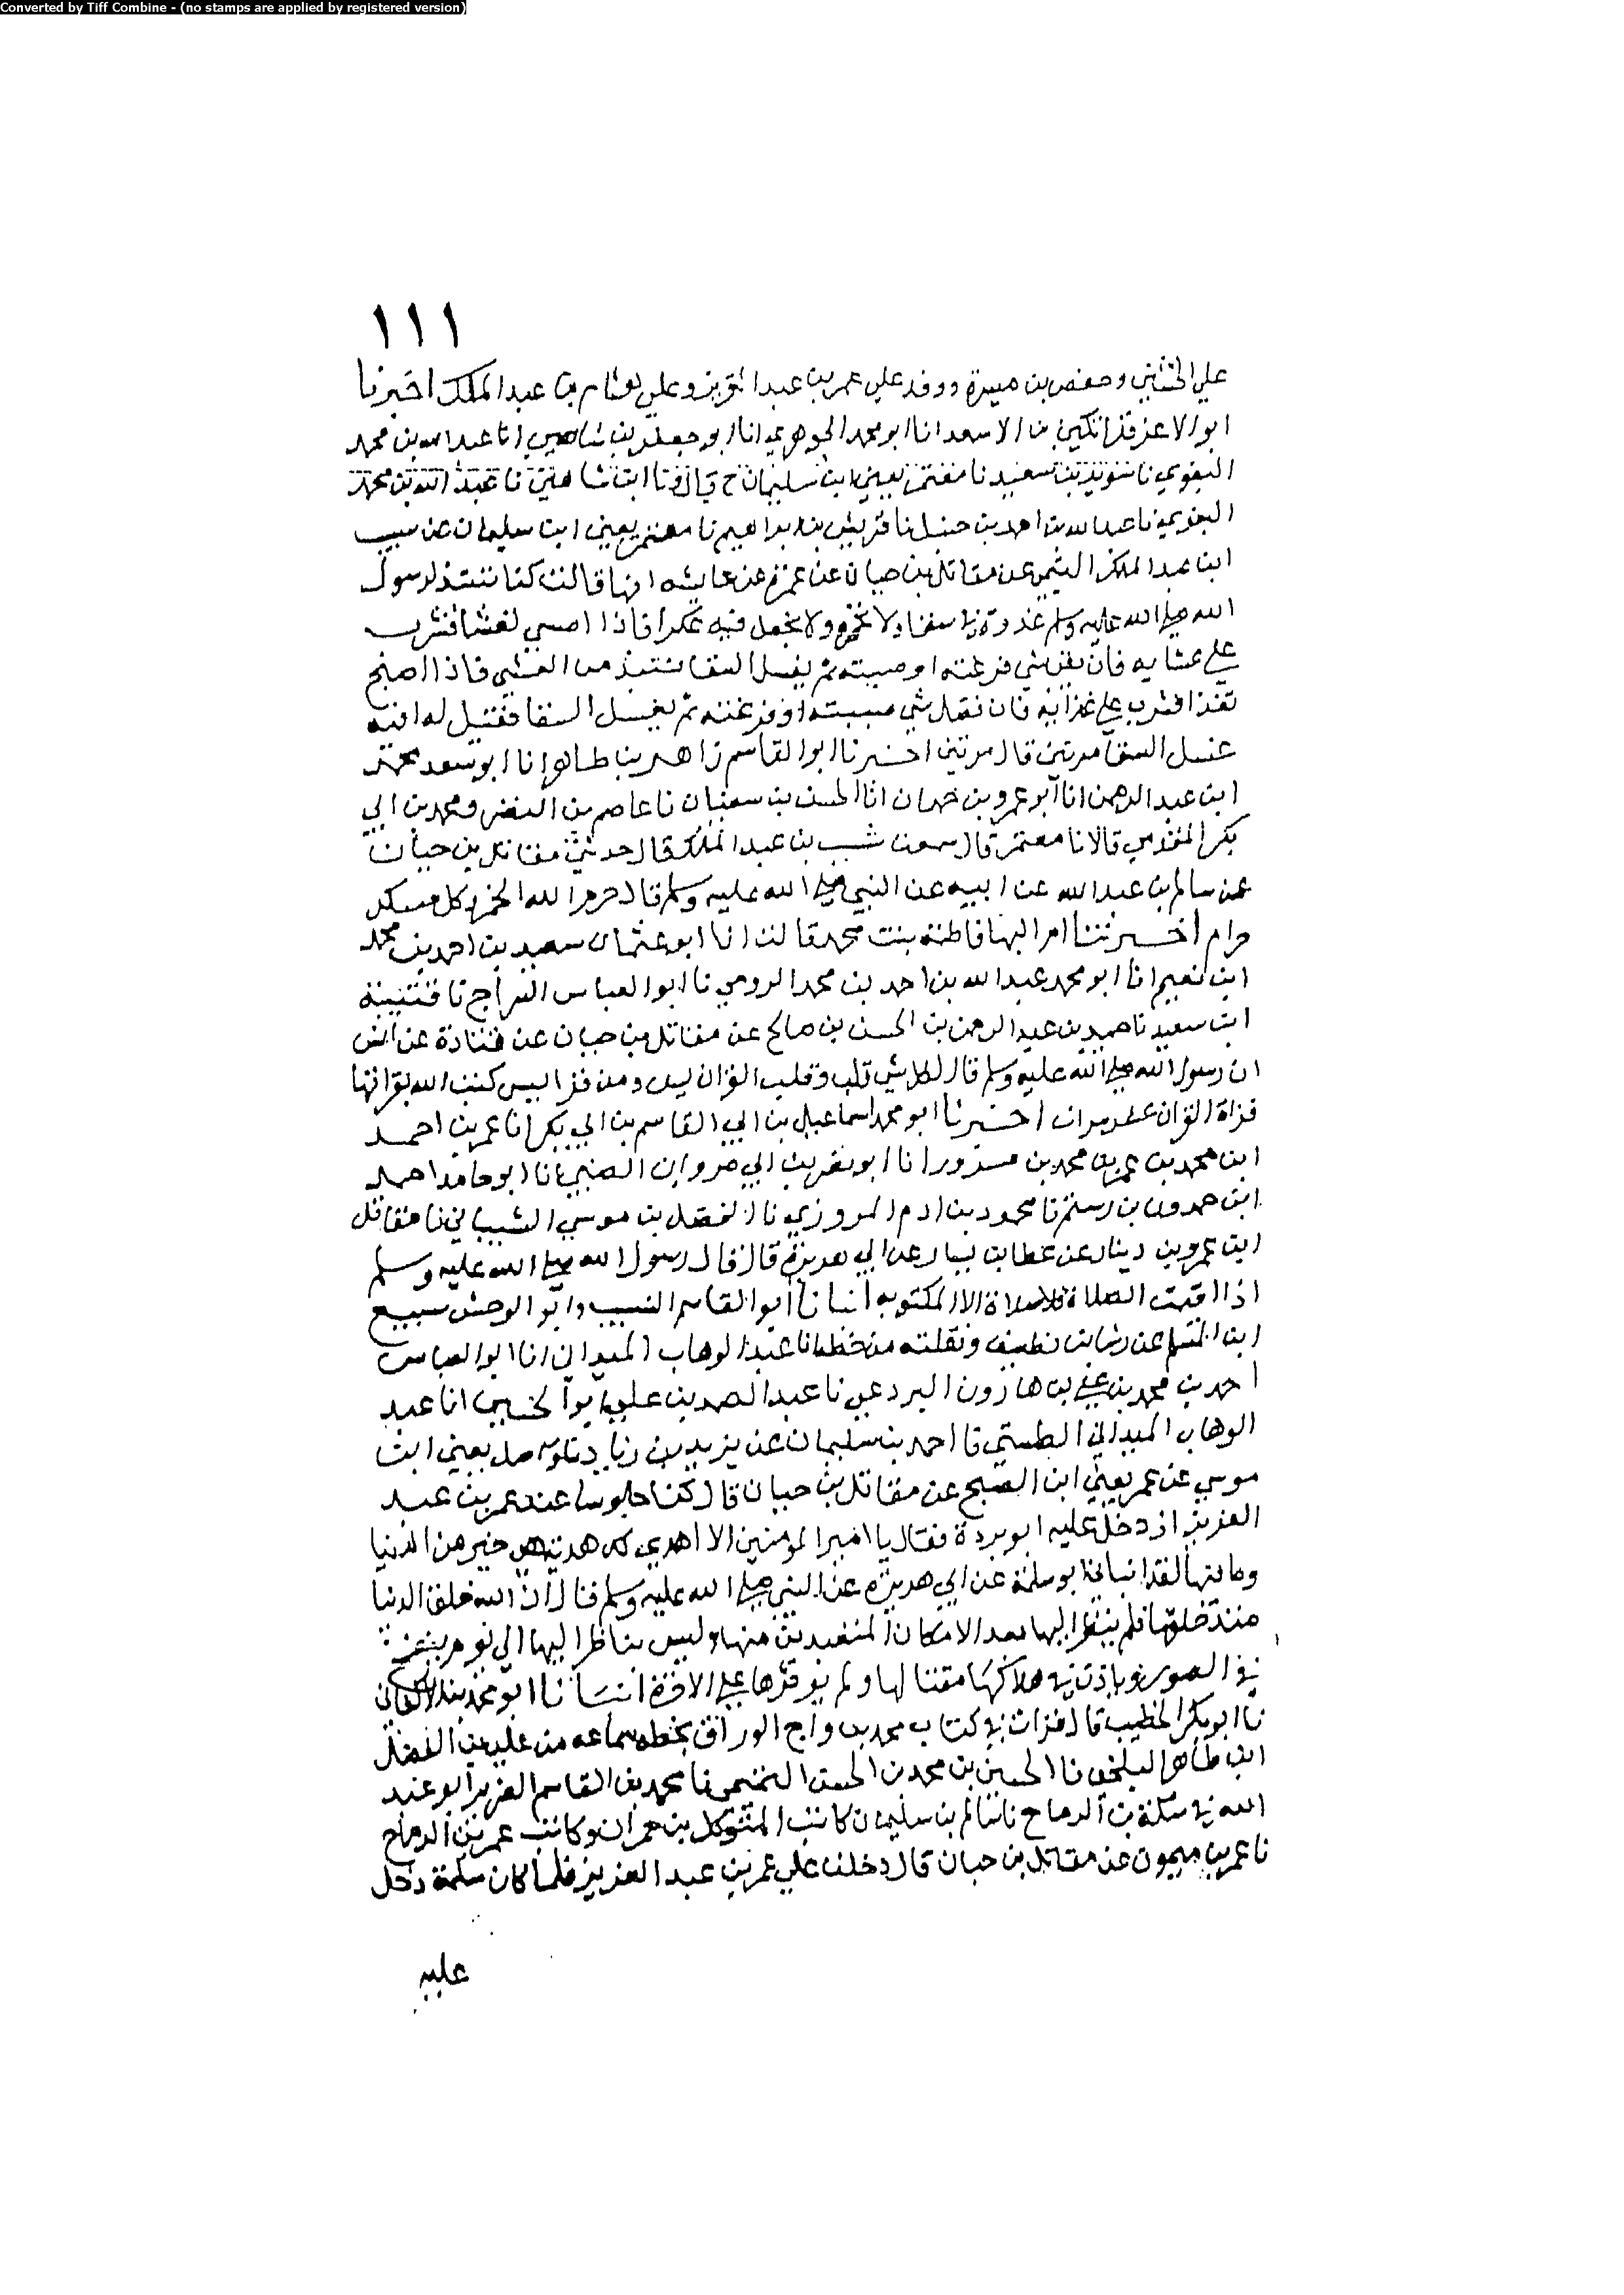 Converted by Tiff Combine - (no stamps are applied by registered version)
١١١
علي الخشني وحفص بن ميسرة ووفد علي عمر بن عبد العزيز وعلي هشام بن عبد الملك اخبرنا
ابو الاعز قراتكين بن الاسعد انا ابو محمد الجوهري انا ابو حفص بن شاهين انا عبد الله بن محمد
البغوي نا سويد بن سعيد نا معتمر يعني ابن سليمان ح قال ونا ابن شاهين نا عبد الله بن محمد
البغوي نا عبد الله بن احمد بن حنبل نا قريش بن ابراهيم نا معتمر يعني ابن سليمان عن شبيب
ابن عبد الملك التيمي عن مقاتل بن حيان عن عمرة عن عايشه انها قالت كنا ننتبذ لرسول
الله صلي الله عليه وسلم غدوة في سقاء ولا نخمره ولا نجعل فيه عكرا فاذا امسي تعشا فشرب
علي عشايه فان بقي شي فرغته او صببته ثم يغسل السقا فننتبذ من العشي فاذا اصبح
تغذا فشرب علي غذايه فان فضل شي صببته او فرغته ثم يغسل السقا فقيل له افيه
غسل السقا مرتين قال مرتين اخبرنا ابو القاسم زاهر بن طاهر انا ابو سعد محمد
ابن عبد الرحمن انا ابو عمرو بن حمدان انا الحسن بن سفيان نا عاصم بن النضر ومحمد بن ابي
بكر المقدمي قالا نا معتمر قال سمعت شبيب بن عبد الملك قال حدثني مقاتل بن حيان
عن سالم بن عبد الله عن ابيه عن النبي صلي الله عليه وسلم قال حرم الله الخمر وكل مسكر
حرام اخبرتنا ام البها فاطمة بنت محمد قالت انا ابو عثمان سعيد بن احمد بن محمد
ابن نعيم انا ابو محمد عبد الله بن احمد بن محمد الرومي نا ابو العباس السراج نا قتيبة
ابن سعيد نا حميد بن عبد الرحمن بن الحسن بن صالح عن مقاتل بن حيان عن قتادة عن انس
ان رسول الله صلي الله عليه وسلم قال لكل شي قلب وقلب القران يس ومن قرا يس كتب الله بقراتها
قراة القران عشر مرات اخبرنا ابو محمد اسماعيل بن ابي القاسم بن ابي بكر انا عمر بن احمد
ابن محمد بن عمر بن محمد بن مسرور انا ابو نصر بن ابي مروان الضبي نا ابو حامد احمد
ابن حمدون بن رستم نا محمود بن ادم المروزي نا الفضل بن موسي الشيباني نا مقاتل
ابن عمرو بن دينار عن عطا بن يسار عن ابي هريرة قال قال رسول الله صلي الله عليه وسلم
اذا اقيمت الصلاة فلا صلاة الا المكتوبه انبانا ابو القاسم النسيب وابو الوحش سبيع
ابن المسلم عن رشا بن نظيف ونقلته من خطه انا عبد الوهاب الميداني انا ابو العباس
احمد بن محمد بن علي بن هارون البردعي نا عبد الصمد بن علي ابو الحسين انا عبد
الوهاب الميداني الطستي نا احمد بن سليمان عن يزيد بن زياد نا يعني ابن
موسي عن عمر يعني ابن الصبح عن مقاتل بن حيان قال كنا جلوسا عند عمر بن عبد
العزيز اذ دخل عليه ابو بردة فقال يا امير المومنين الا اهدي لك هدية هي خير من الدنيا
وما فيها لقد انباني ابو سلمة عن ابي هريرة عن النبي صلي الله عليه وسلم قال ان الله خلق الدنيا
منذ خلقها فلم ينظر اليها بعد الا مكان المتعبدين منها وليس بناظر اليها الي يوم ينفخ
في الصور وياذن في هلاكها مقتا لها ولم يوثرها علي الاخرة انبانا ابو محمد بن الاكفاني
نا ابو بكر الخطيب قال قرات في كتاب محمد بن الوراق بخطه سماعه من علي بن الفضل
ابن طاهر البلخي نا الحسين بن محمد بن الحسن التميمي نا محمد بن القاسم ابو عبد
الله في سكة بن الرماح نا سالم بن سليمان كاتب المتوكل بن حمران وكاتب عمر بن الرماح
نا عمر بن ميمون عن مقاتل بن حيان قال دخلت علي عمر بن عبد العزيز فلما كان دخل
عليه